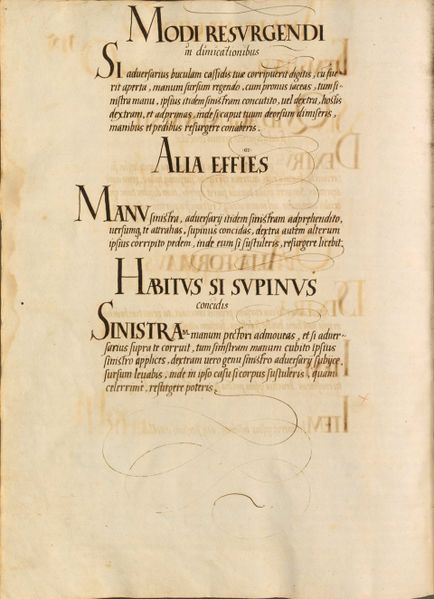 MODI RESVRGENDI
in dimicationibus
SI adversarius buculam cassidis tuæ corripuerit digitis, ea fue-
rit aperta, manum sursum regendo, cum pronus iaceas, tum si-
nistra manu, ipsius itidem sinistram concutito, vel dextra, hostis
dextram, et adprimas, inde si caput tuum deorsum dimiseris,
manibus et pedibus resurgere conaberis.
ALIA EFFIES
MANV sinistra, adversarij itidem sinistram adprehendito,
versumq te attrahas, supinus concidas, dextra autem alterum
ipsius corripito pedem, inde eum si sustuleris, resurgere licebit.
HABITVS SI SVPINVS
concidis
SINISTRAM manum pectori admoveas, et si adver-
sarius supra te corruit, tum sinistram manum cubito ipsius
sinistro applices, dextram vero genu sinistro adversarij subijce,
sursum levabis, inde in ipso casu si corpus sustuleris, quam
celerrime, resurgere poteris.